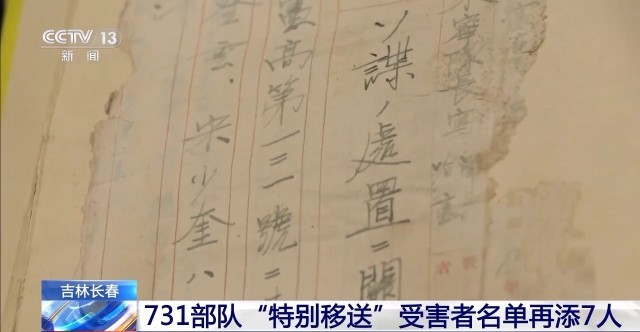 CCTV 13
新闻
寧隊長宛
ソ諜ノ處置ニ関
憲高第一三一號ニ
宋少奎ハ
吉林长春
731部队“特别移送”受害者名单再添7人